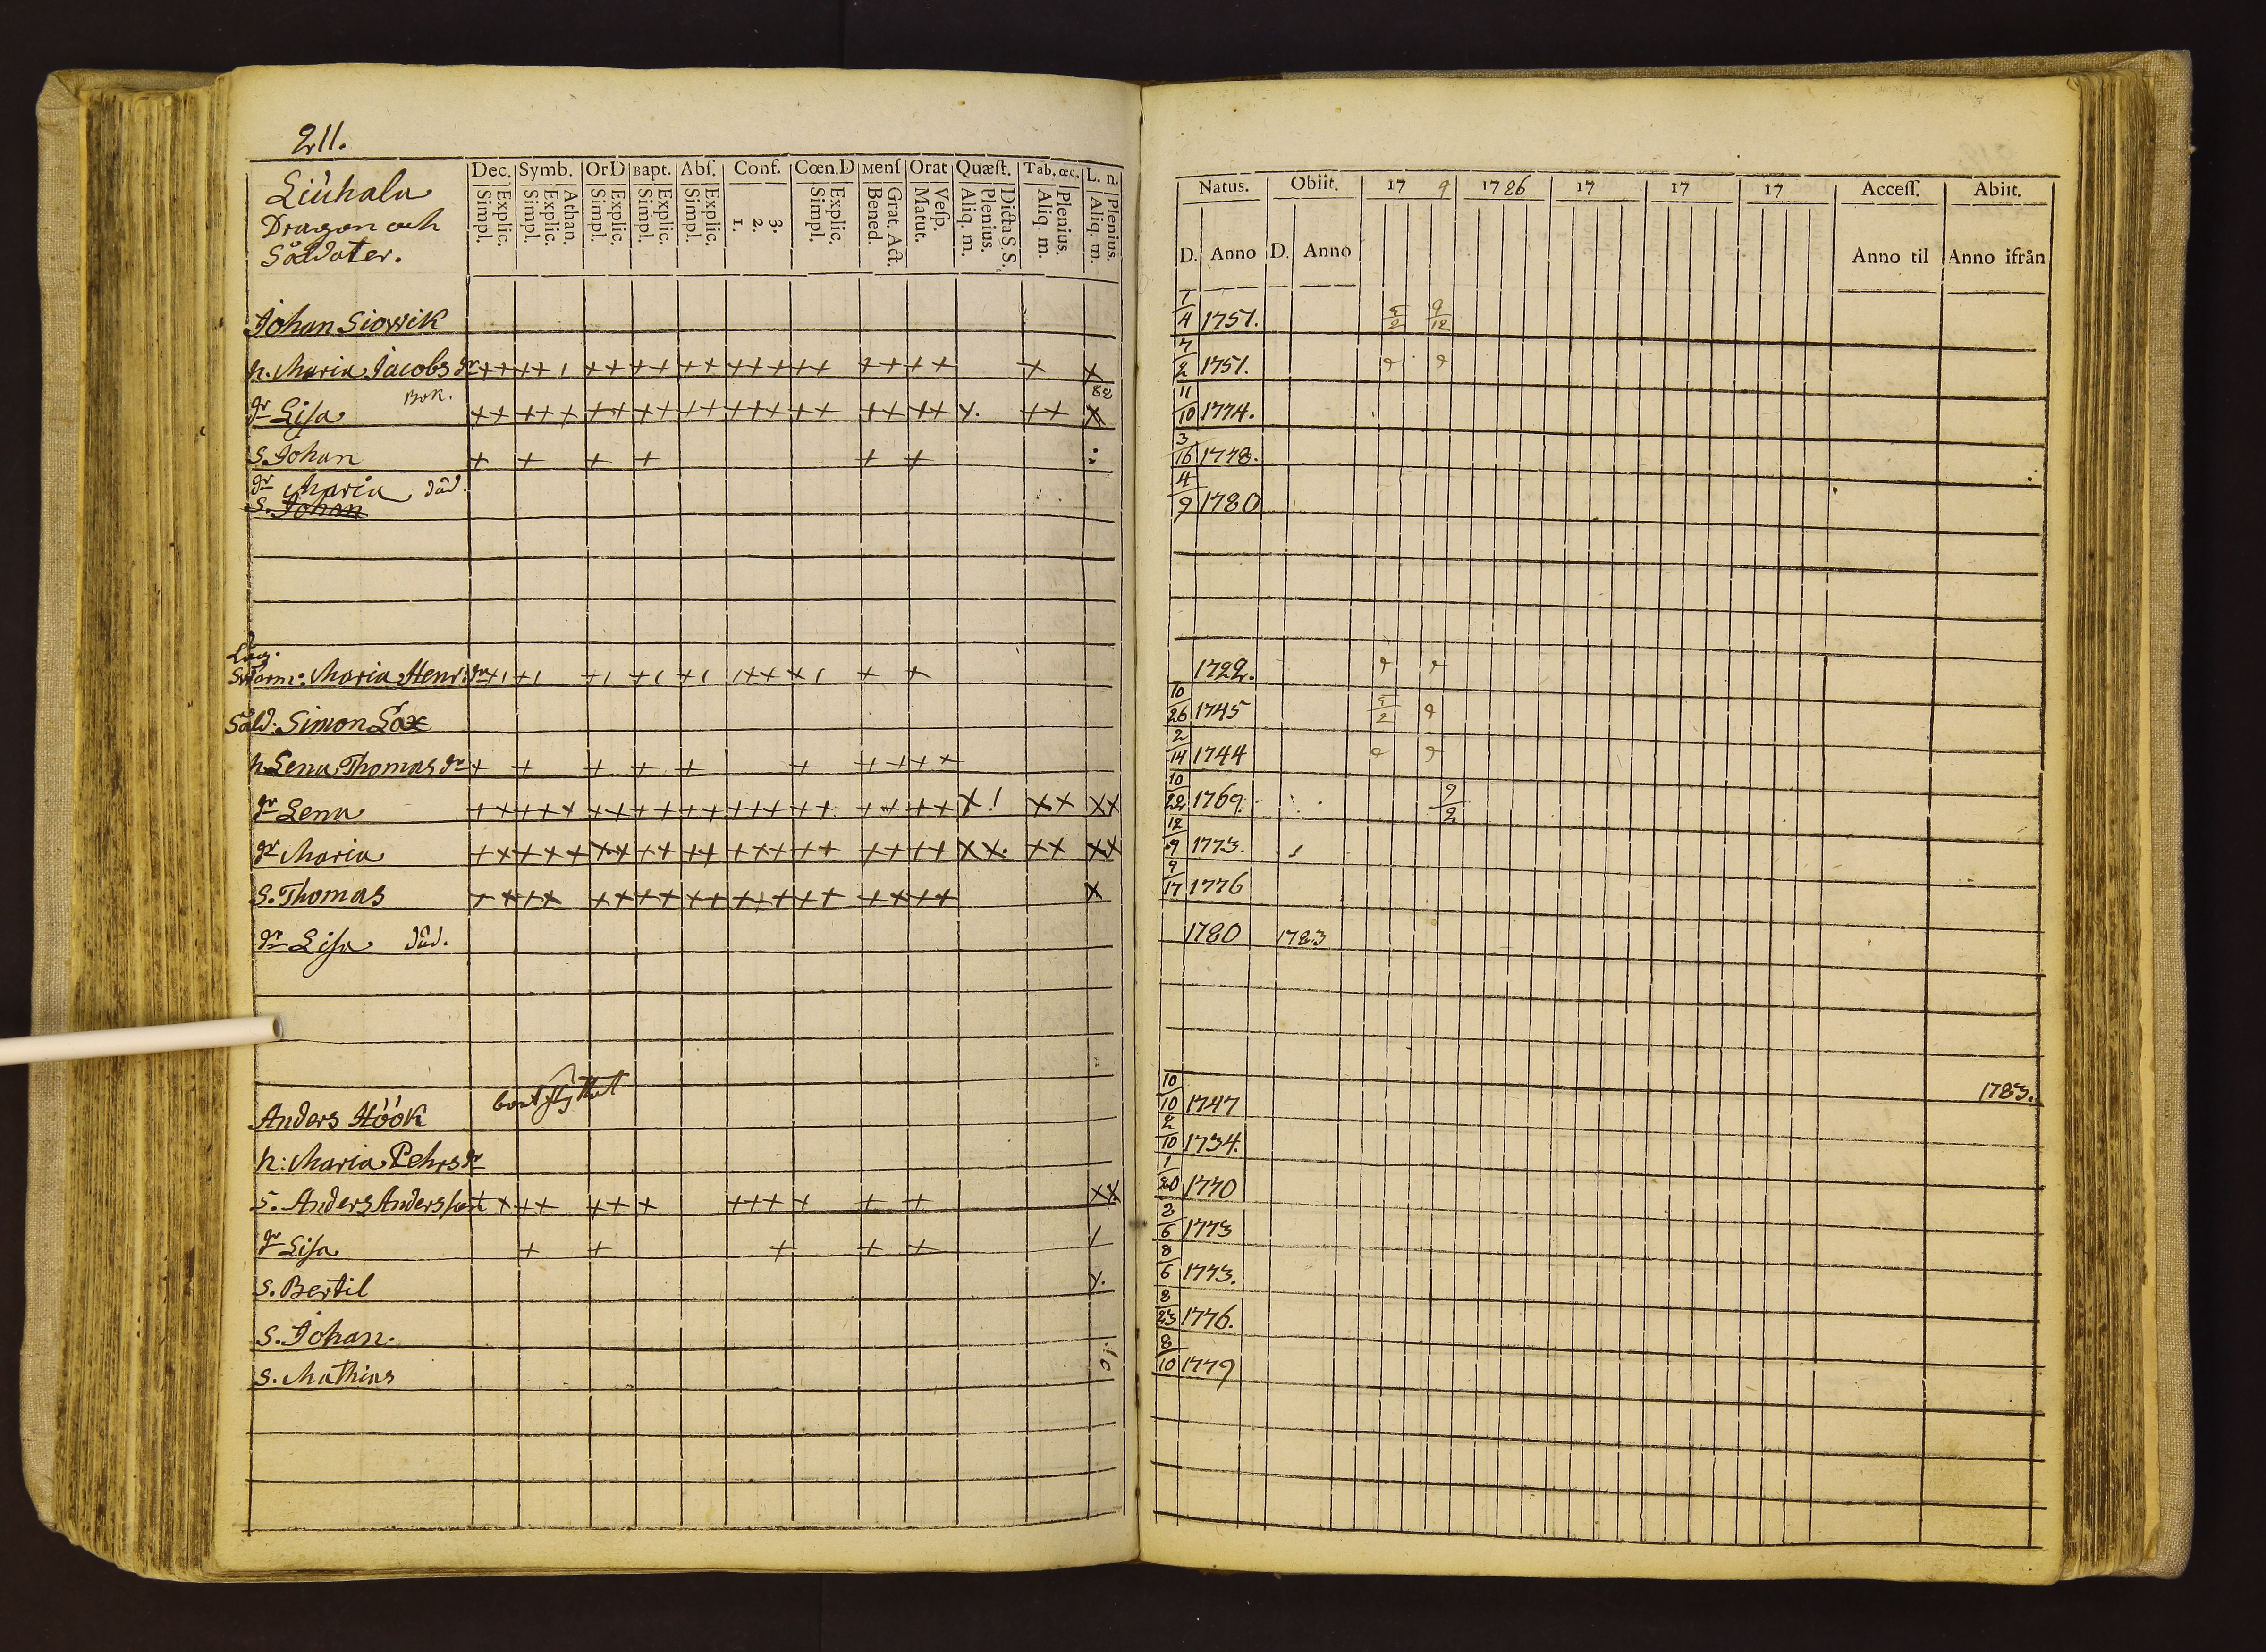 211.
Liuhala
Dragon och
Såldater.
Dec. Symb. Or D Bapt. Abſ. Conf. Cœn.D Menſ Orat Quæſt. Tab. œc. L. n.
Simpl. Explic. Simpl. Explic. Athan. Simpl. Explic. Simpl. Explic. Simpl. Explic. 1. 2. 3. Simpl. Explic. Bened. Grat. Act. Matut. Veſp. Aliq. m. Plenius. Dicta S. S. Aliq m. Plenius. Aliq. m. Plenius.
Natus. Obiit. 17 9 1786 17 17 17 Acceſſ. Abiit.
D. Anno D. Anno Anno til Anno ifrån
Johan Siövik 1/4 1751. 9/12
h. Maria Jacobs dr 7/2 1751.
Bok. 88
dr Lisa 11/10 1774.
S. Johan 3/16 1778.
dr Maria död.
S. Johan 4/9 1780
Svärm: Maria Henr: dr 1722.
Såld: Simon Lax 10/26 1745
h. Lena Thomas dr 2/14 1744
dr Lena 10/22 1769. 9/2
dr Maria 12/9 1773.
S. Thomas 9/17 1776
dr Lisa död. 1780 1783
Anders Höök bortflyttat 10/10 1747 1783.
h: Maria Pehrs dr 2/10 1734.
S. Anders Andersson 1/20 1770
dr Lisa 2/6 1773
S. Bertil 8/6 1773.
S. Johan. 8/23 1776.
S. Mathias 8/10 1779